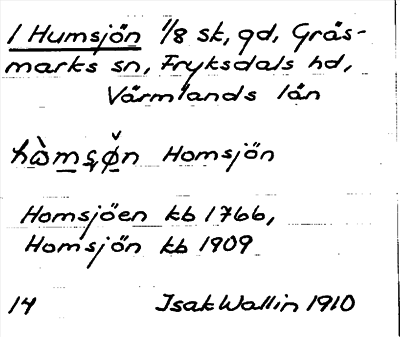 1 Humsjön 1/8 sk, gd, Gräs-
marks sn, Fryksdals hd,
Värmlands län
hòmʂø̌n Homsjön
Homsjöen kb 1766,
Homsjön kb 1909
14 Isak Wallin 1910